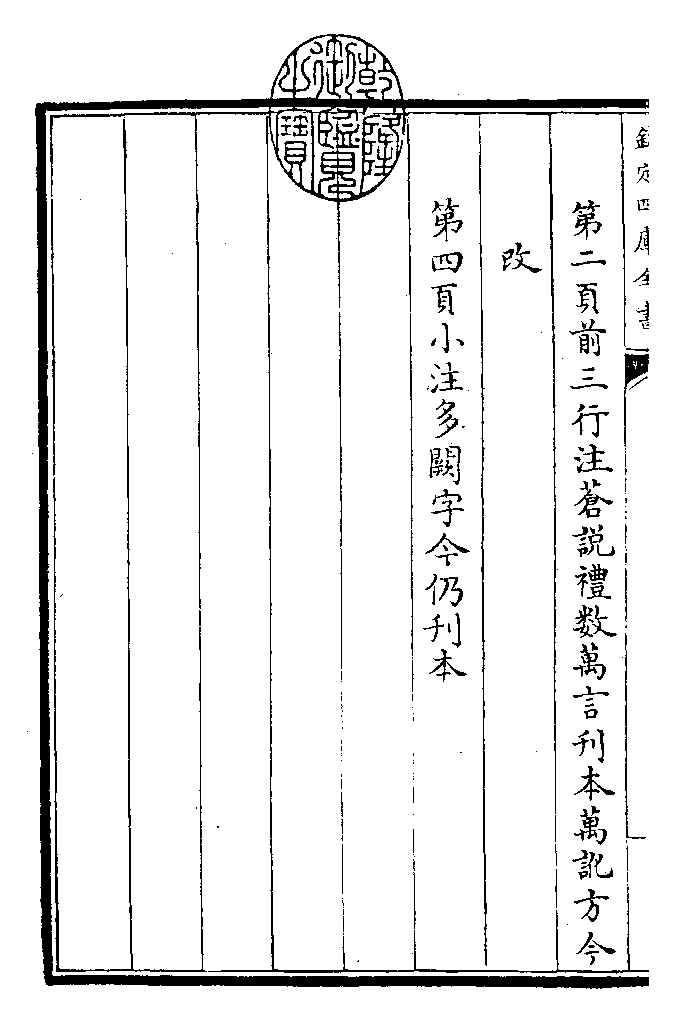 欽定四庫全書
第二頁前三行注蒼説禮數萬言刊本萬訛方今
改
第四頁小注多闕字今仍刊本
乾隆御覽之寶